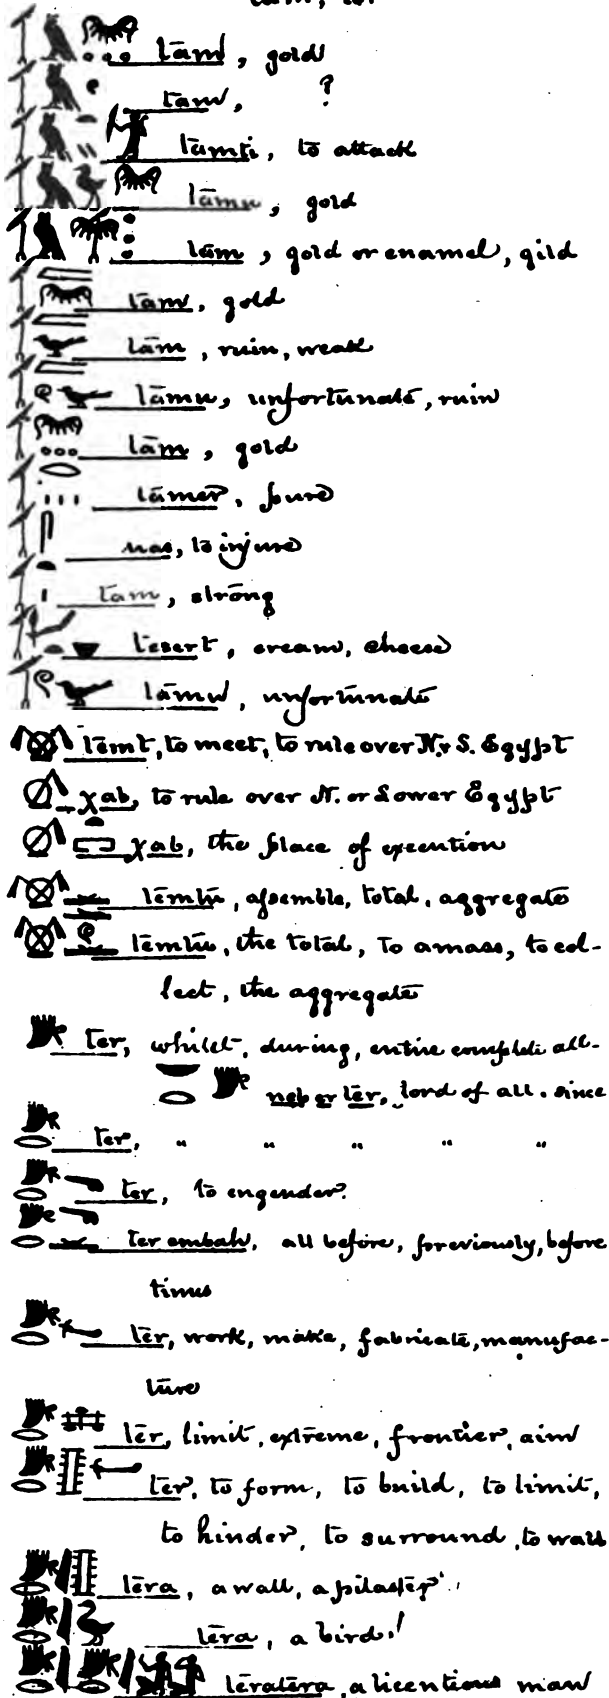 tam, gold
tam, ?
tamti, to attack
tamu, gold
tam, gold or enamel, gild
tam, gold
tam, ruin, weak
tamu, unfortunate, ruin
tam, gold
tamer, pure
uas, to injure
tam, strong
tesert, cream, cheese
tamu, unfortunate
temt, to meet, to rule over N. & S. Egypt
χab, to rule over N. or Lower Egypt
χab, the place of execution
temtu, assemble, total, aggregate
temtu, the total, to amass, to col-
lect, the aggregate
ter, whilst, during, entire complete all.
neb er ter, lord of all. since
ter, " " " " "
ter, to engender.
ter embah, all before, previously, before
times
ter, work, make, fabricate, manufac-
ture
ter, limit, extreme, frontier, aim
ter, to form, to build, to limit,
to hinder, to surround, to wall
tera, a wall, a pilaster
tera, a bird.
teratera, a licentious man